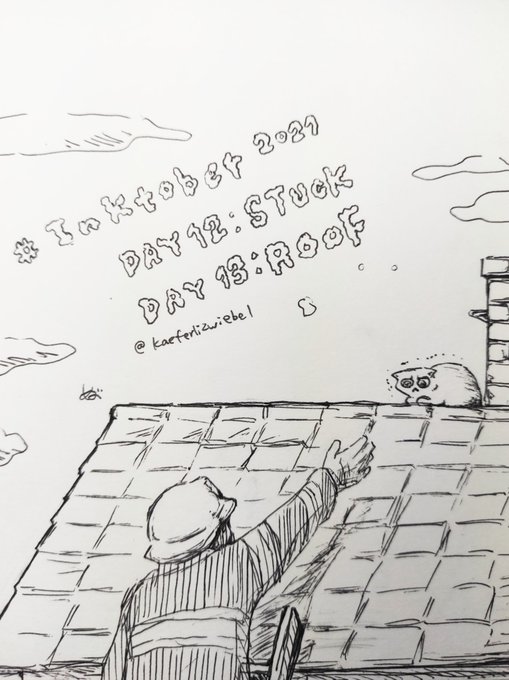 # Inktober 2021
DAY 12: STUCK
DAY 13: ROOF
@kaeferlizwiebel